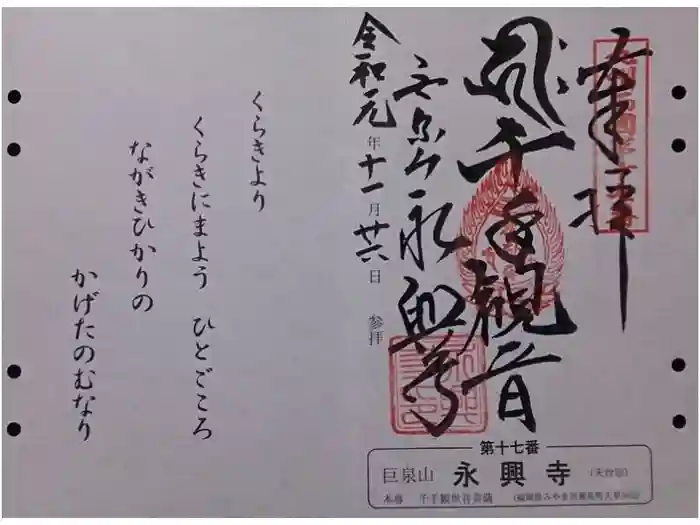 奉拝
千手観音
永興寺
令和元年十一月廿六日 参拝
くらきより
くらきにまよう ひとごころ
ながきひかりの
かげたのむなり
第十七番
巨泉山 永興寺 (天台宗)
本尊 千手観世音菩薩